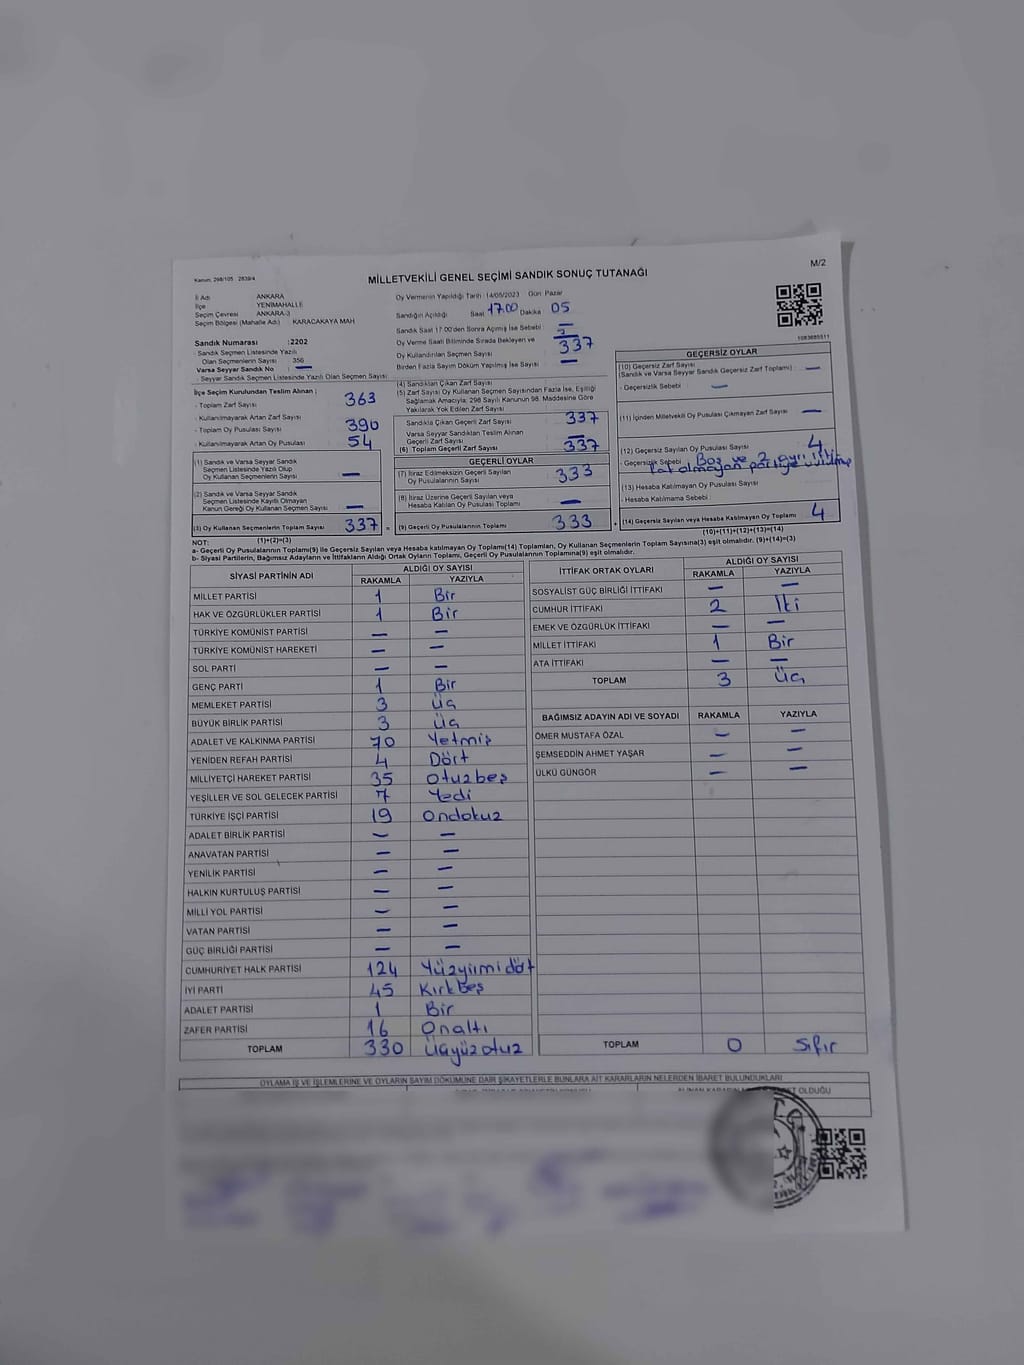 Kanun: 298/105 2839/4
M/2
MİLLETVEKİLİ GENEL SEÇİMİ SANDIK SONUÇ TUTANAĞI
İl Adı ANKARA
İlçe YENİMAHALLE
Seçim Çevresi ANKARA-3
Seçim Bölgesi (Mahalle Adı) : KARACAKAYA MAH
Sandık Numarası :2202
- Sandık Seçmen Listesinde Yazılı
Olan Seçmenlerin Sayısı 356
Varsa Seyyar Sandık No —
- Seyyar Sandık Seçmen Listesinde Yazılı Olan Seçmen Sayısı
İlçe Seçim Kurulundan Teslim Alınan ;
- Toplam Zarf Sayısı 363
- Kullanılmayarak Artan Zarf Sayısı
- Toplam Oy Pusulası Sayısı 390
- Kullanılmayarak Artan Oy Pusulası 54
(1) Sandık ve Varsa Seyyar Sandık
Seçmen Listesinde Yazılı Olup
Oy Kullanan Seçmenlerin Sayısı —
(2) Sandık ve Varsa Seyyar Sandık
Seçmen Listesinde Kayıtlı Olmayan
Kanun Gereği Oy Kullanan Seçmen Sayısı —
(3) Oy Kullanan Seçmenlerin Toplam Sayısı 337
(1)+(2)=(3)
Oy Vermenin Yapıldığı Tarih 14/05/2023 Gün: Pazar
Sandığın Açıldığı Saat 17.00 Dakika 05
Sandık Saat 17:00'den Sonra Açılmış İse Sebebi : —
Oy Verme Saati Bitiminde Sırada Bekleyen ve
Oy Kullandırılan Seçmen Sayısı 337
Birden Fazla Sayım Döküm Yapılmış İse Sayısı —
(4) Sandıktan Çıkan Zarf Sayısı
(5) Zarf Sayısı Oy Kullanan Seçmen Sayısından Fazla İse, Eşitliği
Sağlamak Amacıyla; 298 Sayılı Kanunun 98. Maddesine Göre
Yakılarak Yok Edilen Zarf Sayısı
Sandıkla Çıkan Geçerli Zarf Sayısı 337
Varsa Seyyar Sandıktan Teslim Alınan
Geçerli Zarf Sayısı —
(6) Toplam Geçerli Zarf Sayısı 337
GEÇERLİ OYLAR
(7) İtiraz Edilmeksizin Geçerli Sayılan
Oy Pusulasının Sayısı 333
(8) İtiraz Üzerine Geçerli Sayılan veya
Hesaba Katılan Oy Pusulası Toplamı —
(9) Geçerli Oy Pusulalarının Toplamı 333
1083685511
GEÇERSİZ OYLAR
(10) Geçersiz Zarf Sayısı
(Sandık ve Varsa Seyyar Sandık Geçersiz Zarf Toplamı) : —
- Geçersizlik Sebebi : —
(11) İçinden Milletvekili Oy Pusulası Çıkmayan Zarf Sayısı —
(12) Geçersiz Sayılan Oy Pusulası Sayısı 4
- Geçersizlik Sebebi : Boş ve 2 ayrı
olmayan partiye
(13) Hesaba Katılmayan Oy Pusulası Sayısı
- Hesaba Katılmama Sebebi :
(14) Geçersiz Sayılan veya Hesaba Katılmayan Oy Toplamı 4
(10)+(11)+(12)+(13)=(14)
NOT:
a- Geçerli Oy Pusulalarının Toplamı(9) ile Geçersiz Sayılan veya Hesaba katılmayan Oy Toplamı(14) Toplamları, Oy Kullanan Seçmenlerin Toplam Sayısına(3) eşit olmalıdır. (9)+(14)=(3)
b- Siyasi Partilerin, Bağımsız Adayların ve İttifakların Aldığı Ortak Oyların Toplamı, Geçerli Oy Pusulalarının Toplamına(9) eşit olmalıdır.
SİYASİ PARTİNİN ADI ALDIĞI OY SAYISI
RAKAMLA YAZIYLA
MİLLET PARTİSİ 1 Bir
HAK VE ÖZGÜRLÜKLER PARTİSİ 1 Bir
TÜRKİYE KOMÜNİST PARTİSİ — —
TÜRKİYE KOMÜNİST HAREKETİ — —
SOL PARTİ — —
GENÇ PARTİ 1 Bir
MEMLEKET PARTİSİ 3 Üç
BÜYÜK BİRLİK PARTİSİ 3 Üç
ADALET VE KALKINMA PARTİSİ 70 Yetmiş
YENİDEN REFAH PARTİSİ 4 Dört
MİLLİYETÇİ HAREKET PARTİSİ 35 Otuzbeş
YEŞİLLER VE SOL GELECEK PARTİSİ 7 Yedi
TÜRKİYE İŞÇİ PARTİSİ 19 Ondokuz
ADALET BİRLİK PARTİSİ — —
ANAVATAN PARTİSİ — —
YENİLİK PARTİSİ — —
HALKIN KURTULUŞ PARTİSİ — —
MİLLİ YOL PARTİSİ — —
VATAN PARTİSİ — —
GÜÇ BİRLİĞİ PARTİSİ — —
CUMHURİYET HALK PARTİSİ 124 Yüzyirmidört
İYİ PARTİ 45 Kırkbeş
ADALET PARTİSİ 1 Bir
ZAFER PARTİSİ 16 Onaltı
TOPLAM 330 Üçyüzotuz
İTTİFAK ORTAK OYLARI ALDIĞI OY SAYISI
RAKAMLA YAZIYLA
SOSYALİST GÜÇ BİRLİĞİ İTTİFAKI — —
CUMHUR İTTİFAKI 2 İki
EMEK VE ÖZGÜRLÜK İTTİFAKI — —
MİLLET İTTİFAKI 1 Bir
ATA İTTİFAKI — —
TOPLAM 3 Üç
BAĞIMSIZ ADAYIN ADI VE SOYADI RAKAMLA YAZIYLA
ÖMER MUSTAFA ÖZAL — —
ŞEMSEDDİN AHMET YAŞAR — —
ÜLKÜ GÜNGÖR — —
TOPLAM 0 Sıfır
OYLAMA İŞ VE İŞLEMLERİNE VE OYLARIN SAYIM DÖKÜMÜNE DAİR ŞİKAYETLERLE BUNLARA AİT KARARLARIN NELERDEN İBARET BULUNDUKLARI
OLDUĞU